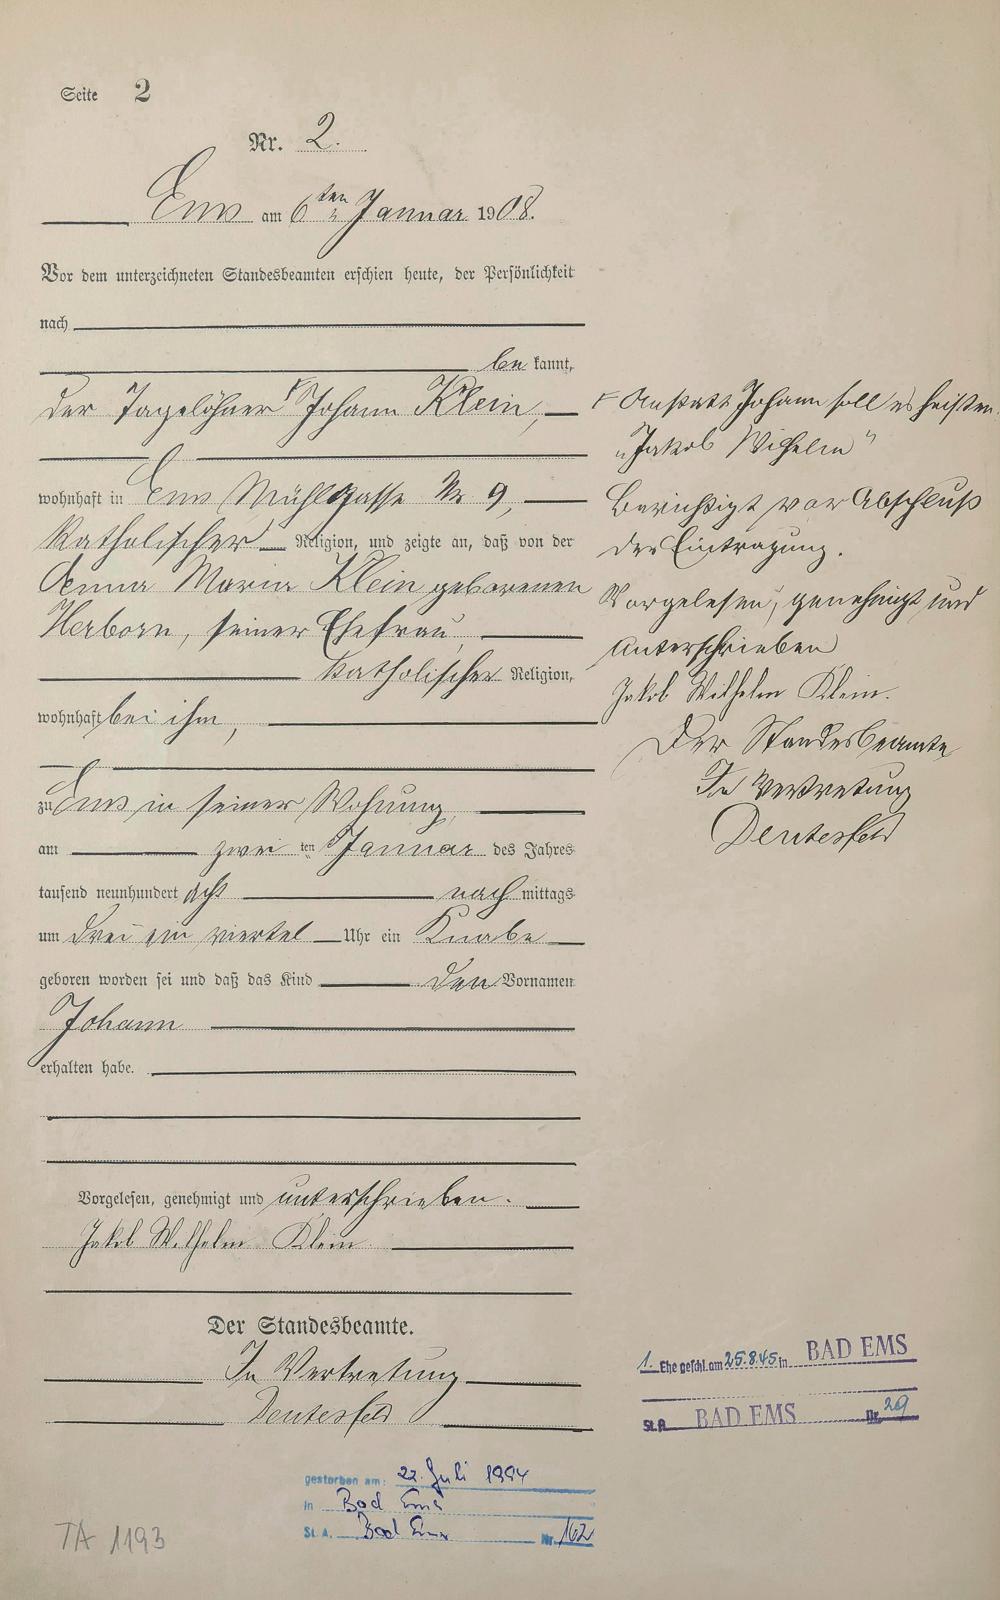 Seite 2
Nr. 2.
Ems am 6ten Januar 1908.
Vor dem unterzeichneten Standesbeamten erschien heute, der Persönlichkeit
nach
be kannt,
der Tagelöhner Ⅎ Johann Klein,
wohnhaft in Ems Mühlgasse Nr 9,
Katholischer Religion, und zeigte an, daß von der
Anna Maria Klein geborenen
Herborn, seiner Ehefrau,
Katholischer Religion,
wohnhaft bei ihm,
zu Ems in seiner Wohnung,
am zwei ten Januar des Jahres
tausend neunhundert acht nach mittags
um drei ein viertel Uhr ein Knabe
geboren worden sei und daß das Kind den Vornamen
Johann
erhalten habe.
Vorgelesen, genehmigt und unterschrieben.
Jakob Wilhelm Klein
Der Standesbeamte.
In Vertretung
Deutesfeld
Ⅎ Anstatt Johann soll es heißen
„Jakob Wilhelm"
Berichtigt vor Abschluß
der Eintragung.
Vorgelesen, genehmigt und
unterschrieben
Jakob Wilhelm Klein.
Der Standesbeamte
In Vertretung
Deutesfeld
1. Ehe geschl. am 25.8.45 in BAD EMS
St.A. BAD EMS Nr. 29
gestorben am: 22. Juli 1994
in Bad Ems
St. A. Bad Ems Nr. 162
TA 1193